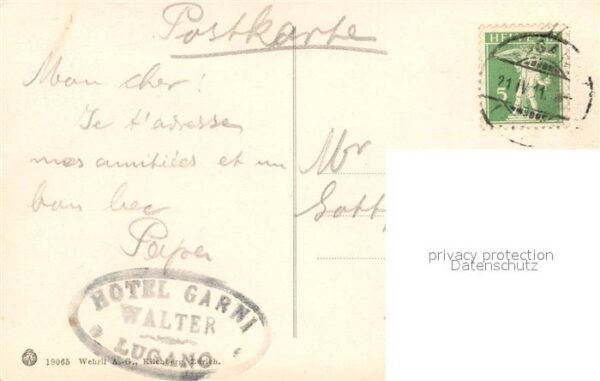 Postkarte
HELVETIA
5
21 IV 11.
Mon cher!
Je t'adresse
mes amitiées et un
bon bec
Mr
Gottf
HOTEL GARNI
WALTER
LUGANO
privacy protection
Datenschutz
19065 Wehrli A.-G., Kilchberg, Zürich.